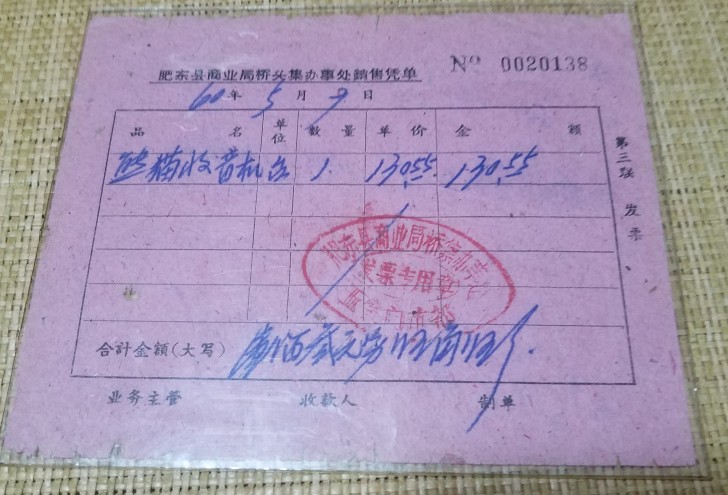 肥东县商业局桥头集办事处銷售凭单
Nº 0020138
60年5月9日
品 名 单位 数量 单价 金 额
熊猫收音机 台 1. 130.55 130.55
第三联 发票
肥东县商业局桥头集办事处
发票专用章
合計金額(大写)
业务主管 收款人 制单